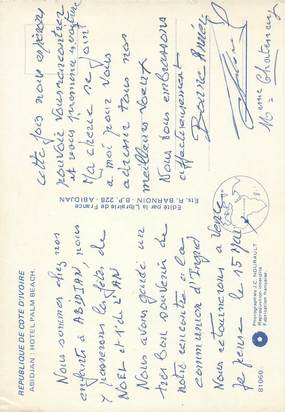 REPUBLIQUE DE COTE D'IVOIRE
ABIDJAN : HOTEL PALM BEACH.
Nous sommes chez nos
enfants à ABIDJAN, nous
y passerons les fêtes de
NOËL et 1er de l'AN
Nous avons gardé un
très bon souvenir de
notre rencontre à la
communion d'Ingrid
Nous retournerons à
je pense le 15 Mai
Edité la Librairie de France
Ets. R. BARNOIN - B.P. 228 - ABIDJAN
cette fois nous espérons
pouvoir vous rencontrer
et vous promener en voiture
Ma chérie se joint
à moi pour vous
adresser tous nos
meilleurs vœux
Nous vous embrassons
affectueusement
Bonne Année
Photographies J.C. NOURAULT
Reproduction interdite
81060